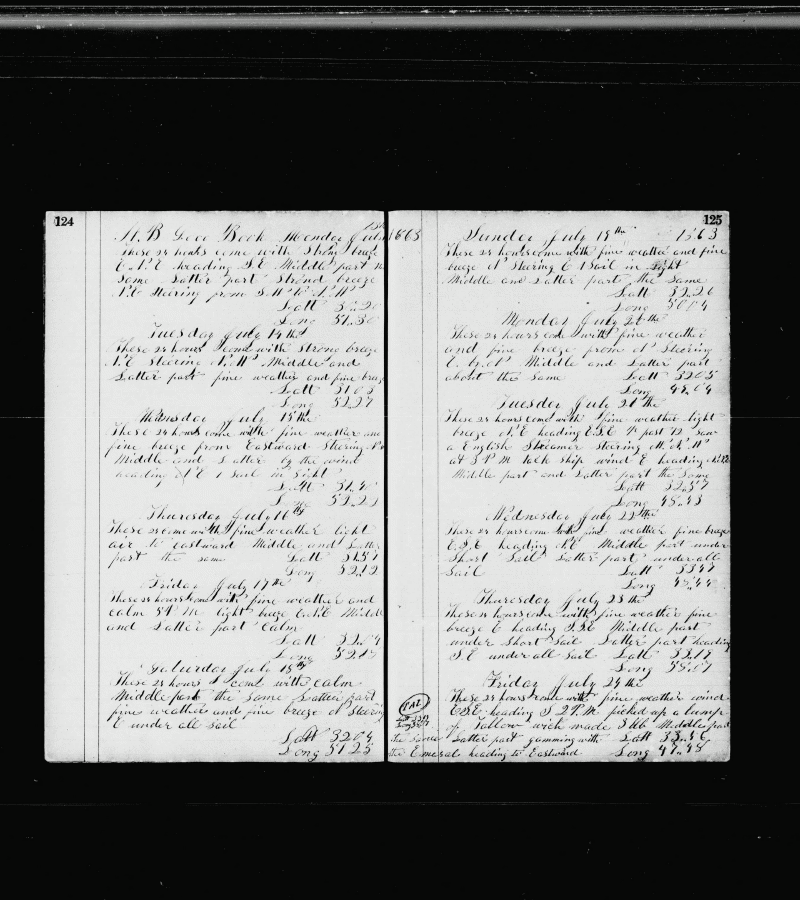 124
H. B Log Book Monday July 13th 1863
These 24 hours come with Strong breeze
E.N.E heading S.E Middle part the
Same Latter part Strond breeze
N.E Steering from S.W to N.W
Latt
Long 51.30
Tuesday July 14th
These 24 hours come with Strong breeze
N.E Steering N.W Middle and
Latter part fine weather and fine breeze
Latt 31 03
Long 52.27
Wednesday July 15th
These 24 hours come with fine weather and
fine breeze from Eastward Steering
Middle and Latter by the wind
heading N.E 1 sail in Sight
Latt 31.40
Long 52.23
Thursday July 16th
These 24 come with fine weather light
air to Eastward Middle and Latter
part the same Latt 31.57
Long 52.12
Friday July 17th
These 24 hours come with fine weather and
calm 5 P M light breeze E.N.E Middle
and Latter part Calm
Latt 32.04
Long 52.17
Saturday July 18th
These 24 hours come with Calm
Middle part the Same Latter part
fine weather and fine breeze N Steering
E under all Sail
Latt 32 04
Long 51 25
125
Sunday July 19th 1863
These 24 hours come with fine weather and fine
breeze N Steering E 1 Sail in Sight
Middle and Latter part the Same
Latt 32.26
Long 50 04
Monday July 20th
These 24 hours come with fine weather
and fine breeze from N Steering
E. by N Middle and Latter part
about the Same Latt 32 05
Long 49.04
Tuesday July 21th
These 24 hours come with fine weather light
breeze N.E heading E.S.E ½ past 12 Saw
a English Steamer Steering W.N.W
at 3 P.M tack Ship wind E heading
Middle part and Latter part the Same
Latt 32.57
Long 48.43
Wednesday July 22th
These 24 hours come with fine weather fine breeze
E.S.E heading N.E Middle part under
Short Sail Latter part under all
Sail Latt 33 47
Long 48.44
Thursday July 23th
These 24 hours come with fine weather fine
breeze E heading S.S.E Middle part
under Short Sail Latter part heading
S.E under all Sail Latt 33.17
Long
Friday July 24th
These 24 hours come with fine weather wind
E.S.E heading S 2 P.M picked up a lump
of Tallow wick made 3 bb Middle part
Latter part gamming with Latt 33.56
the Emerald heading to Eastward Long 47.48